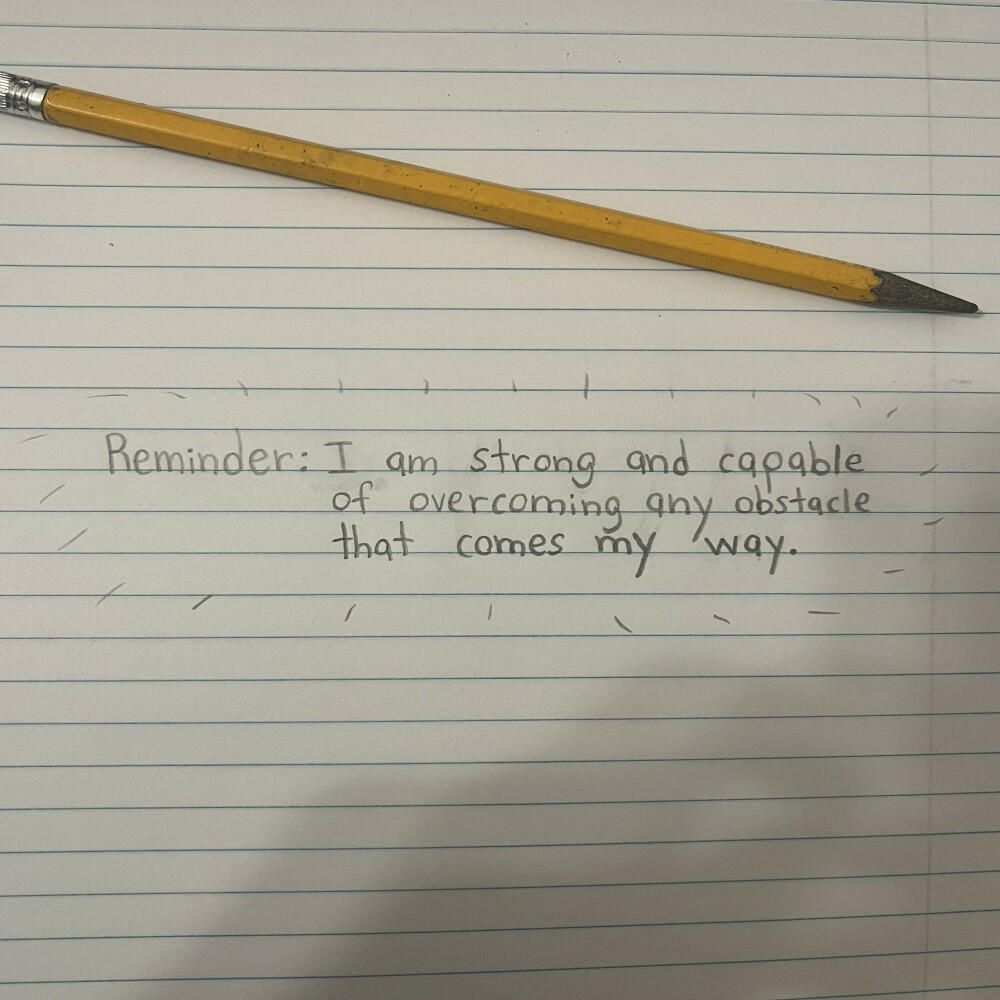 Reminder: I am strong and capable
of overcoming any obstacle
that comes my way.